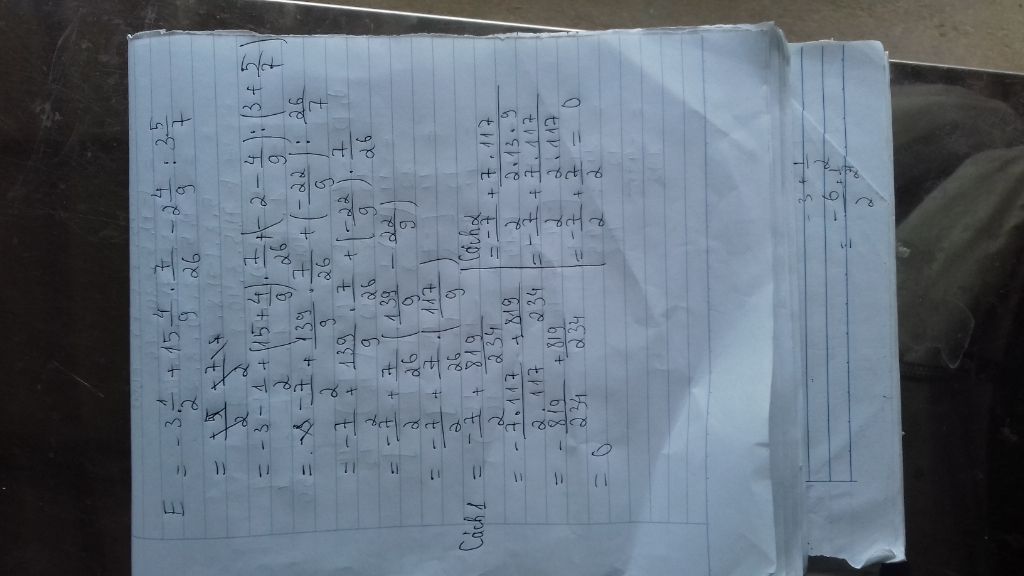 E = -3 1/2 + 15 4/9 . 7/26 - 2 4/9 : 3 5/7
=
= -3 - 1/2 + (15 + 4/9) . 7/26 + (-2 - 4/9) : (3 + 5/7)
= -7/2 + 139/9 . 7/26 + (-22/9) : 26/7
= -7/2 + 139/9 . 7/26 + (-22/9) . 7/26
= -7/2 + 7/26 (139/9 - 22/9)
= -7/2 + 7/26 . (117/9)
Cách 1 = -7/2 + 819/234
= -7.117/2.117 + 819/234
= -819/234 + 819/234
= 0
Cách 2
= -7/2 + 7.117/2.13.9
= -7/2 + 7.117/2.117
= -7/2 + 7/2 = 0
-3 + 1/2
= -6/2 + 1/2